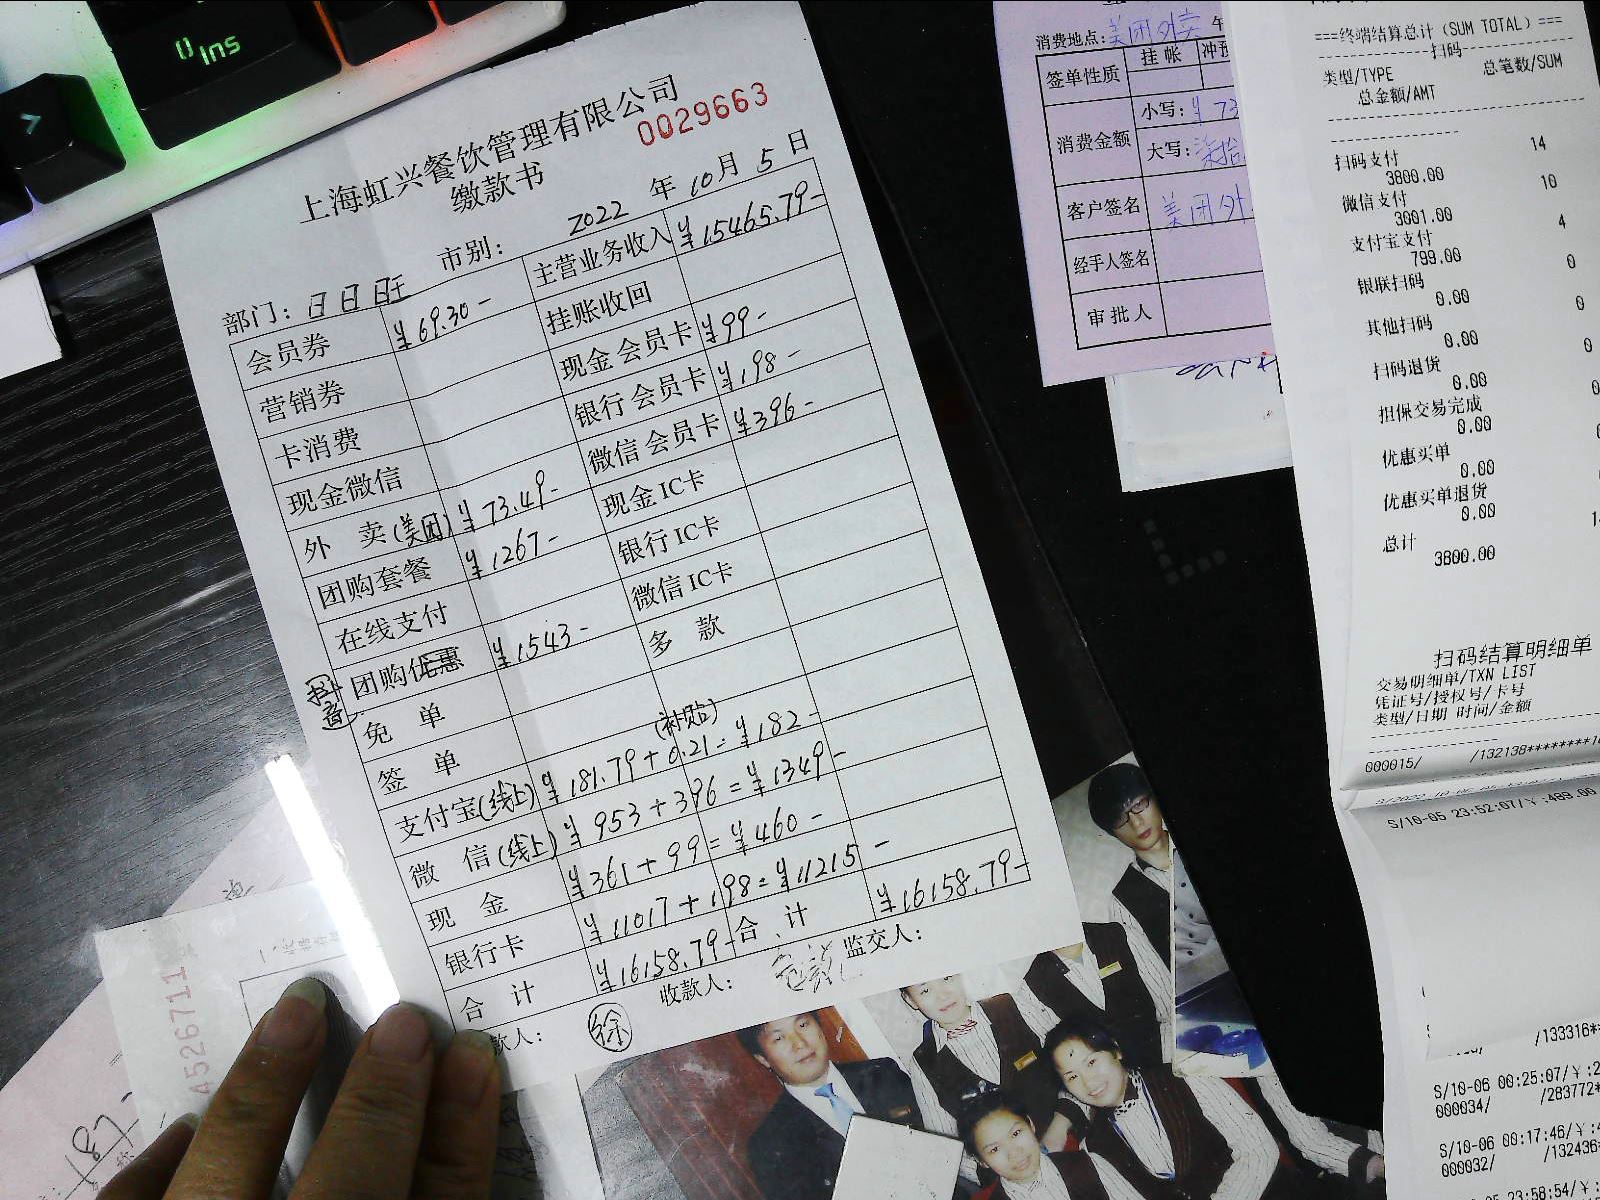 Ins
上海虹兴餐饮管理有限公司
0029663
缴款书
2022 年 10 月 5 日
部门: 日日旺 市别:
会员券 ¥69.30- 主营业务收入 ¥15465.79-
营销券 挂账收回
卡消费 现金会员卡 ¥99-
现金微信 银行会员卡 ¥198-
外 卖(美团) ¥73.49- 微信会员卡 ¥396-
团购套餐 ¥1267- 现金IC卡
在线支付 银行IC卡
抖音 团购优惠 ¥1543- 微信IC卡
免 单 多 款
签 单
(补贴)
支付宝(线上) ¥181.79+0.21=¥182-
微 信(线上) ¥953+396=¥1349-
现 金 ¥361+99=¥460-
银行卡 ¥11017+198=¥11215-
合 计 ¥16158.79- 合 计 ¥16158.79-
款人: 徐 收款人: 监交人:
消费地点: 美团外卖 年
签单性质 挂帐 冲预
消费金额 小写: ¥73
大写: 柒拾
客户签名 美团外
经手人签名
审批人
===终端结算总计(SUM TOTAL)===
扫码
类型/TYPE 总笔数/SUM
总金额/AMT
扫码支付 14
3800.00
微信支付 10
3001.00
支付宝支付 4
799.00
银联扫码 0
0.00
其他扫码 0
0.00
扫码退货 0
0.00
担保交易完成 0
0.00
优惠买单
0.00
优惠买单退货
0.00
总计
3800.00
扫码结算明细单
交易明细单/TXN LIST
凭证号/授权号/卡号
类型/日期 时间/金额
000015/ /132138********1
S/10-05 23:52:07/¥:489.00
/133316**
S/10-06 00:25:07/¥:2
000034/ /283772*
S/10-06 00:17:46/¥:
000032/ /132436*
23:58:54/¥:
4526711
187-